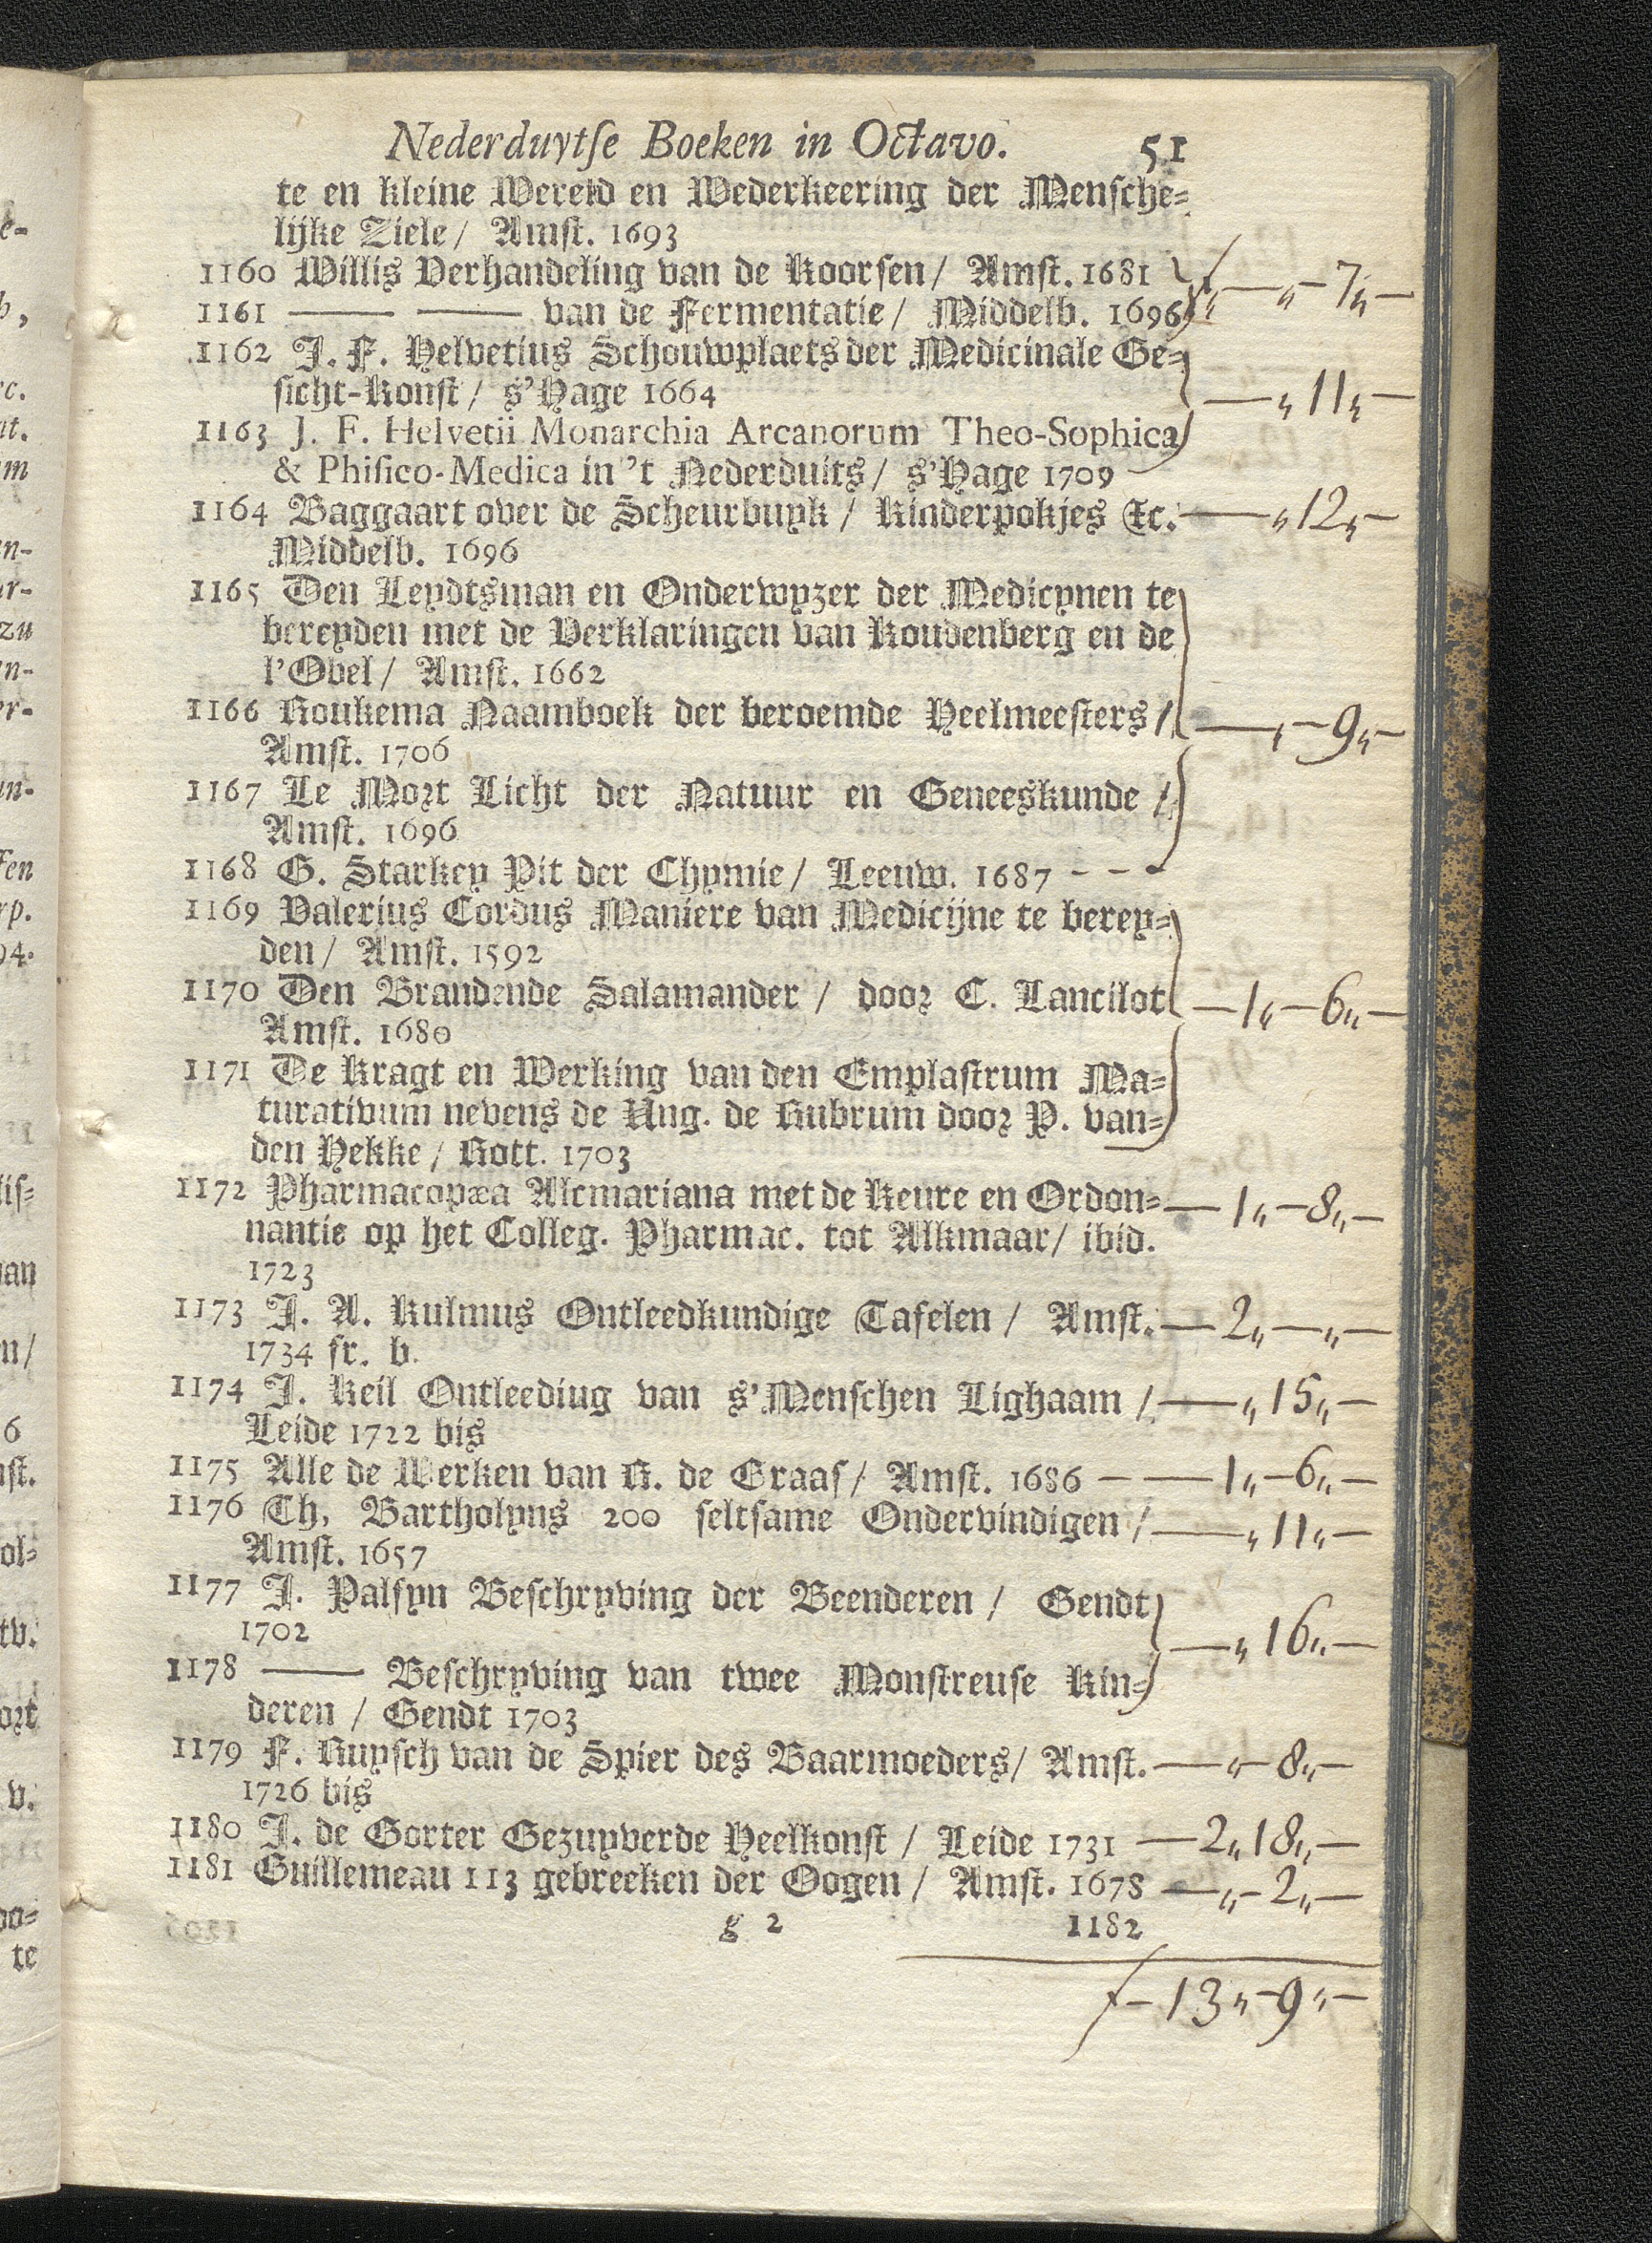 Nederduytſe Boeken in Octavo. 51
te en kleine Wereld en Wederkeering der Menſche-
lijke Ziele / Amſt. 1693
1160 Willis Verhandeling van de Koorſen / Amſt. 1681 — „ — 7 „ —
1161 —— —— van de Fermentatie / Middelb. 1696
1162 J. F. Helvetius Schouwplaets der Medicinale Ge-
ſicht-Konſt / s'Hage 1664 — „ 11 „ —
1163 J. F. Helvetii Monarchia Arcanorum Theo-Sophica
& Phiſico-Medica in 't Nederduits / s'Hage 1709
1164 Baggaart over de Scheurbuyk / Kinderpokjes &c. — „ 12 „ —
Middelb. 1696
1165 Den Leydtsman en Onderwyzer der Medicynen te
bereyden met de Verklaringen van Koudenberg en de
l'Obel / Amſt. 1662
1166 Roukema Naamboek der beroemde Heelmeeſters / — „ — 9 „ —
Amſt. 1706
1167 Le Mort Licht der Natuur en Geneeskunde /
Amſt. 1696
1168 G. Starkey Pit der Chymie / Leeuw. 1687 - - -
1169 Valerius Cordus Maniere van Medicijne te berey-
den / Amſt. 1592
1170 Den Brandende Salamander / door C. Lancilot — 1 „ — 6 „ —
Amſt. 1680
1171 De Kragt en Werking van den Emplaſtrum Ma-
turativum nevens de Ung. de Rubrum door P. van-
den Hekke / Rott. 1703
1172 Pharmacopæa Alcmariana met de Keure en Ordon- — 1 „ — 8 „ —
nantie op het Colleg. Pharmac. tot Alkmaar / ibid.
1723
1173 J. A. Kulmus Ontleedkundige Tafelen / Amſt. — 2 „ — „ —
1734 fr. b.
1174 J. Keil Ontleediug van s'Menſchen Lighaam / — „ 15 „ —
Leide 1722 bis
1175 Alle de Werken van R. de Graaf / Amſt. 1686 — — 1 „ — 6 „ —
1176 Th. Bartholyns 200 ſeltſame Ondervindigen / — „ 11 „ —
Amſt. 1657
1177 J. Palfyn Beſchryving der Beenderen / Gendt
1702 — „ 16 „ —
1178 —— Beſchryving van twee Monſtreuſe Kin-
deren / Gendt 1703
1179 F. Ruyſch van de Spier des Baarmoeders / Amſt. — „ — 8 „ —
1726 bis
1180 J. de Gorter Gezuyverde Heelkonſt / Leide 1731 — 2 „ 18 „ —
1181 Guillemeau 113 gebreeken der Oogen / Amſt. 1678 — „ — 2 „ —
g 2 1182
ƒ — 13 „ — 9 „ —